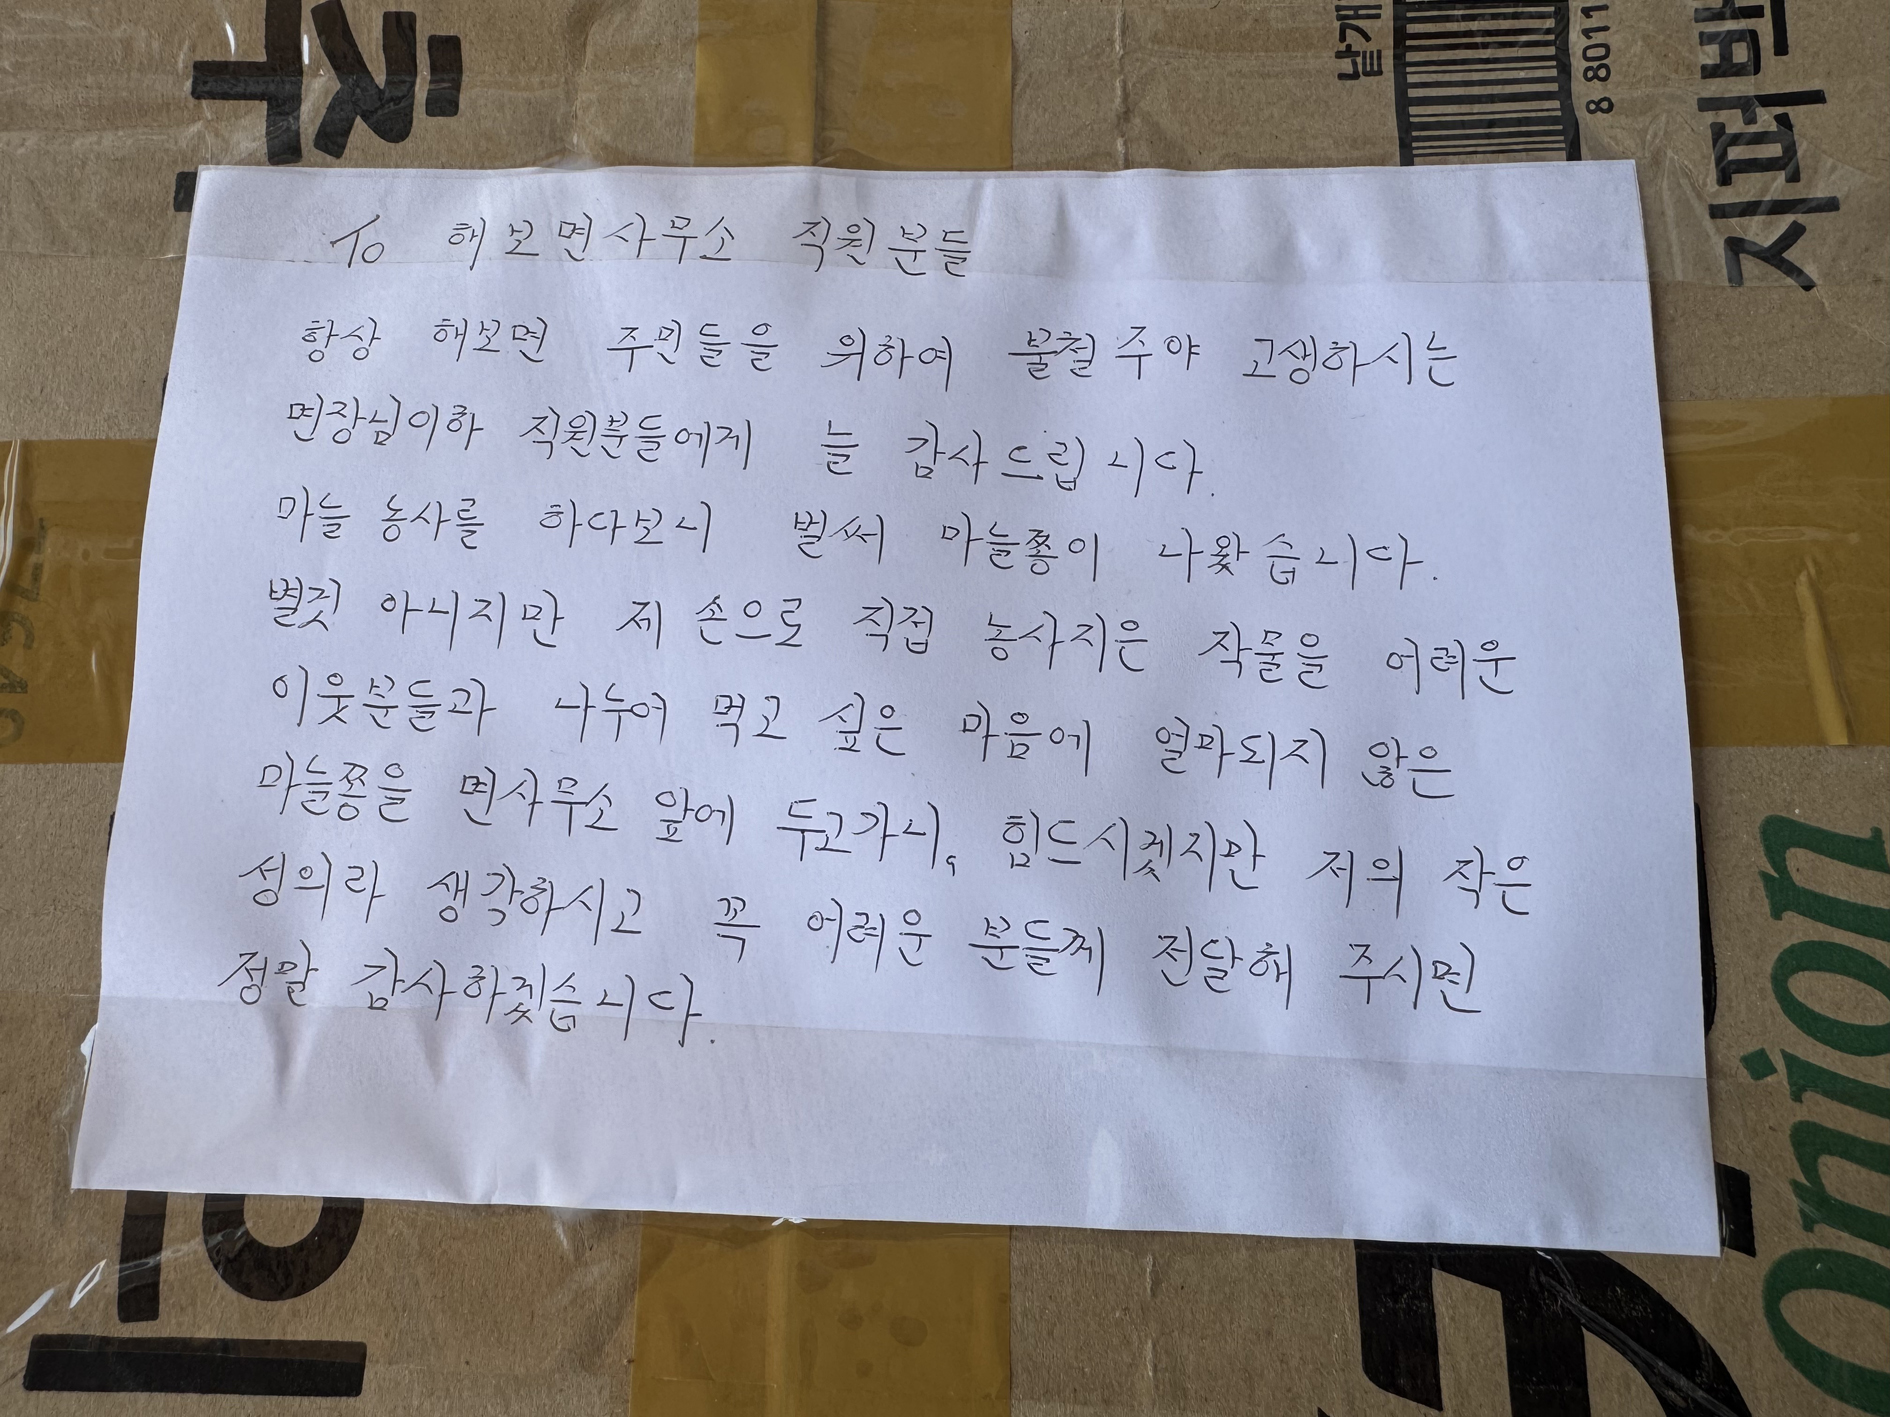 To 해보면사무소 직원분들
항상 해보면 주민들을 위하여 불철주야 고생하시는
면장님이하 직원분들에게 늘 감사드립니다.
마늘 농사를 하다보니 벌써 마늘쫑이 나왔습니다.
별것 아니지만 제 손으로 직접 농사지은 작물을 어려운
이웃분들과 나누어 먹고 싶은 마음에 얼마되지 않은
마늘쫑을 면사무소 앞에 두고가니, 힘드시겟지만 저의 작은
성의라 생각하시고 꼭 어려운 분들께 전달해 주시면
정말 감사하겠습니다.
낱개
8 8011
onion